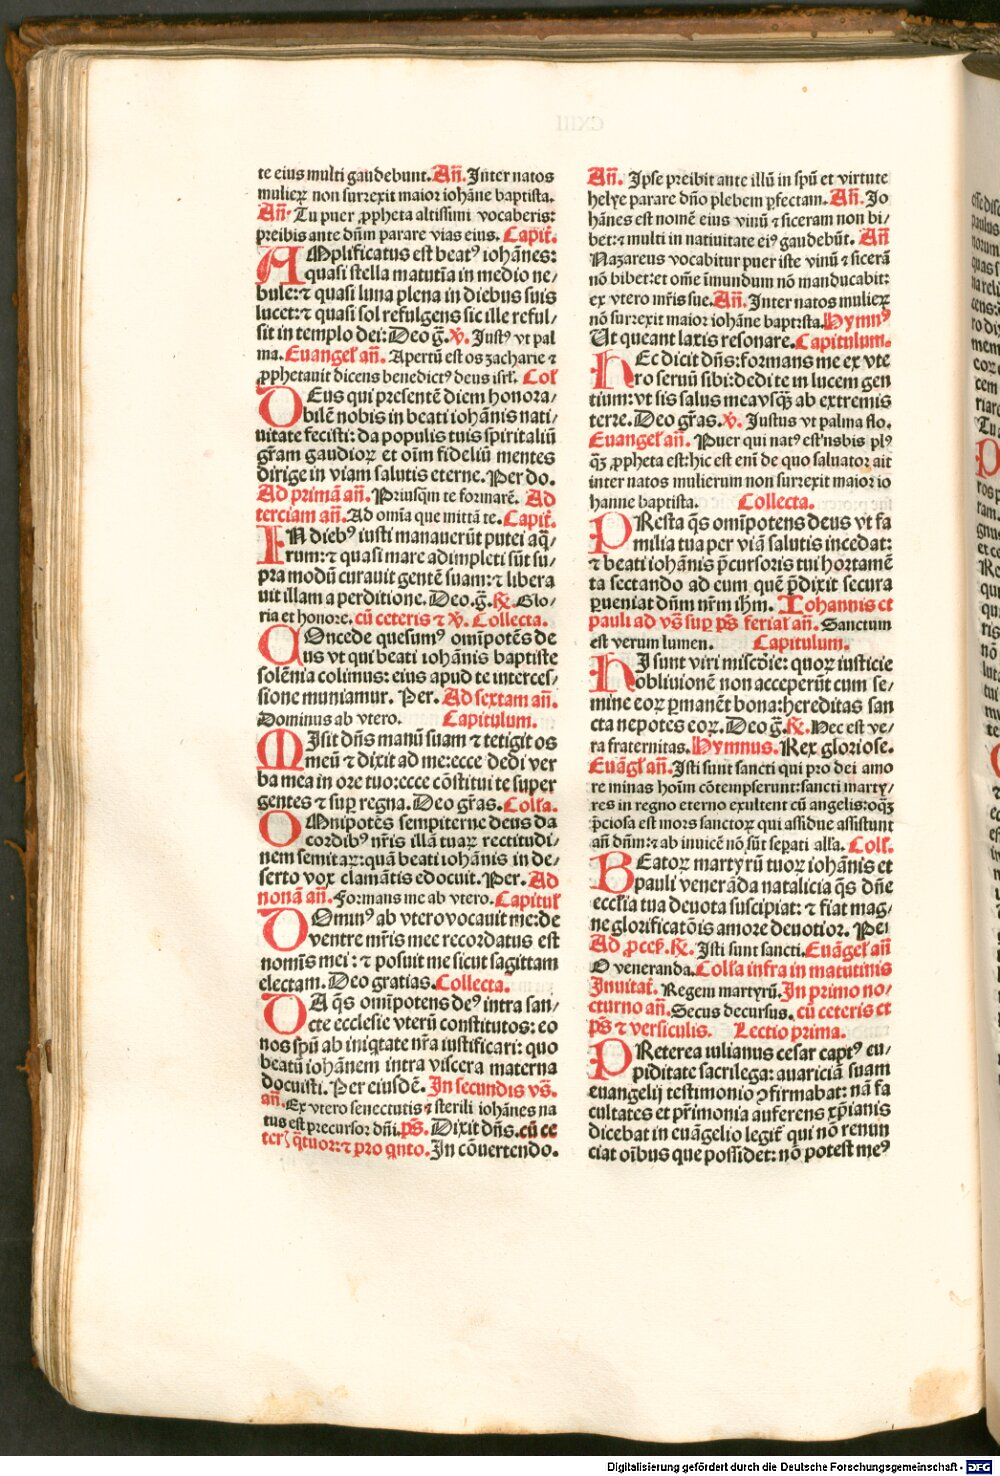 te eius multi gaudebunt. Añ. Inter natos
mulieꝝ non surrexit maior iohāne baptista.
Añ. Tu puer ꝓpheta altissimi vocaberis:
preibis ante dn̄m parare vias eius. Capit̄.
AMplificatus est beatꝰ iohānes:
quasi stella matutīa in medio ne/
bule: ⁊ quasi luna plena in diebus suis
lucet: ⁊ quasi sol refulgens sic ille reful/
sit in templo dei: Deo g̃. ℣. Iustꝰ vt pal
ma. Euangel̄ añ. Apertū est os zacharie ⁊
ꝓphetauit dicens benedictꝰ deus isrl̄. Col̄
DEus qui presentē diem honora/
bilē nobis in beati iohānis nati/
uitate fecisti: da populis tuis spiritaliū
gr̄am gaudioꝝ et oīm fideliū mentes
dirige in viam salutis eterne. Per do.
Ad primā añ. Priusq̄m te formarē. Ad
terciam añ. Ad omīa que mittā te. Capit̄.
IN diebꝰ iusti manauerūt putei aq̄/
rum: ⁊ quasi mare adimpleti sūt su/
pra modū curauit gentē suam: ⁊ libera
uit illam a perditione. Deo. g̃. ℟. Glo/
ria et honore. cū ceteris ⁊ ℣. Collecta.
COncede quesumꝰ omīpotēs de
us vt qui beati iohānis baptiste
solēnia colimus: eius apud te interces/
sione muniamur. Per. Ad sextam añ.
Dominus ab vtero. Capitulum.
MIsit dn̄s manū suam ⁊ tetigit os
meū ⁊ dixit ad me: ecce dedi ver
ba mea in ore tuo: ecce cōstitui te super
gentes ⁊ suꝑ regna. Deo gr̄as. Coll̄a.
OMnipotēs sempiterne deus da
cordibꝰ nr̄is illā tuaꝝ rectitudi/
nem semitaꝝ: quā beati iohānis in de/
serto vox clamātis edocuit. Per. Ad
nonā añ. Formans me ab vtero. Capitul̄
DOminꝰ ab vtero vocauit me: de
ventre mr̄is mee recordatus est
nomīs mei: ⁊ posuit me sicut sagittam
electam. Deo gratias. Collecta.
DA q̄s omīpotens deꝰ intra san/
cte ecclesie vterū constitutos: eo
nos spū ab iniq̄tate nr̄a iustificari: quo
beatū iohānem intra viscera materna
docuisti. Per eiusdē. In secundis vs̄.
añ. Ex vtero senectutis ⁊ sterili iohānes na
tus est precursor dn̄i. ps̄. Dixit dn̄s. cū ce
teris q̄tuor: ⁊ pro quīto. In cōuertendo.
Añ. Ipse preibit ante illū in spū et virtute
helye parare dn̄o plebem ꝑfectam. Añ. Io
hānes est nomē eius vinū ⁊ siceram non bi/
bet: ⁊ multi in natiuitate eiꝰ gaudebūt. Añ
Nazareus vocabitur puer iste vinū ⁊ sicerā
nō bibet: et om̄e īmundum nō manducabit:
ex vtero mr̄is sue. Añ. Inter natos mulieꝝ
nō surrexit maior iohāne baptista. Hymnꝰ
Ut queant laxis resonare. Capitulum.
HEc dicit dn̄s: formans me ex vte
ro seruū sibi: dedi te in lucem gen
tium: vt sis salus mea vsqꝫ ab extremis
terre. Deo gr̄as. ℣. Justus vt palma flo.
Euangel̄ añ. Puer qui natꝰ est nobis plꝰ
qꝫ ꝓpheta est: hic est eni de quo saluator ait
inter natos mulierum non surrexit maior io
hanne baptista. Collecta.
PResta q̄s omīpotens deus vt fa
milia tua per viā salutis incedat:
⁊ beati iohānis p̄cursoris tui hortamē
ta sectando ad eum quē p̄dixit secura
ꝑueniat dn̄m nr̄m ih̄m. Iohannis et
pauli ad vs̄ suꝑ ps̄ ferial̄ añ. Sanctum
est verum lumen. Capitulum.
HI sunt viri misc̄die: quoꝝ iusticie
obliuionē non acceperūt cum se/
mine eoꝝ ꝑmanēt bona: hereditas san
cta nepotes eoꝝ. Deo g̃. ℟. Hec est ve/
ra fraternitas. Hymnus. Rex gloriose.
Euāgl̄ añ. Isti sunt sancti qui pro dei amo
re minas hoīm cōtempserunt: sancti marty/
res in regno eterno exultent cū angelis: oqꝫ
p̄ciosa est mors sanctoꝝ qui assidue assistunt
an̄ dn̄m: ⁊ ab inuicē nō sūt seꝑati all̄a. Coll̄.
BEatoꝝ martyrū tuoꝝ iohānis et
pauli venerāda natalicia q̄s dn̄e
eccl̄ia tua deuota suscipiat: ⁊ fiat mag/
ne glorificatōis amore deuotior. Pei
Ad ꝓcess̄. ℟. Isti sunt sancti. Euāgel̄ añ
O veneranda. Coll̄a infra in matutinis
Inuitat̄. Regem martyrū. In primo no/
cturno añ. Secus decursus. cū ceteris et
ps̄ ⁊ versiculis. Lectio prima.
PReterea iulianus cesar captꝰ cu/
piditate sacrilega: auariciā suam
euangelij testimonio ꝯfirmabat: nā fa
cultates et pr̄imonia auferens xp̄ianis
dicebat in euāgelio legit̄ qui nō renun
ciat oībus que possidet: nō potest meꝰ
Digitalisierung gefördert durch die Deutsche Forschungsgemeinschaft - DFG